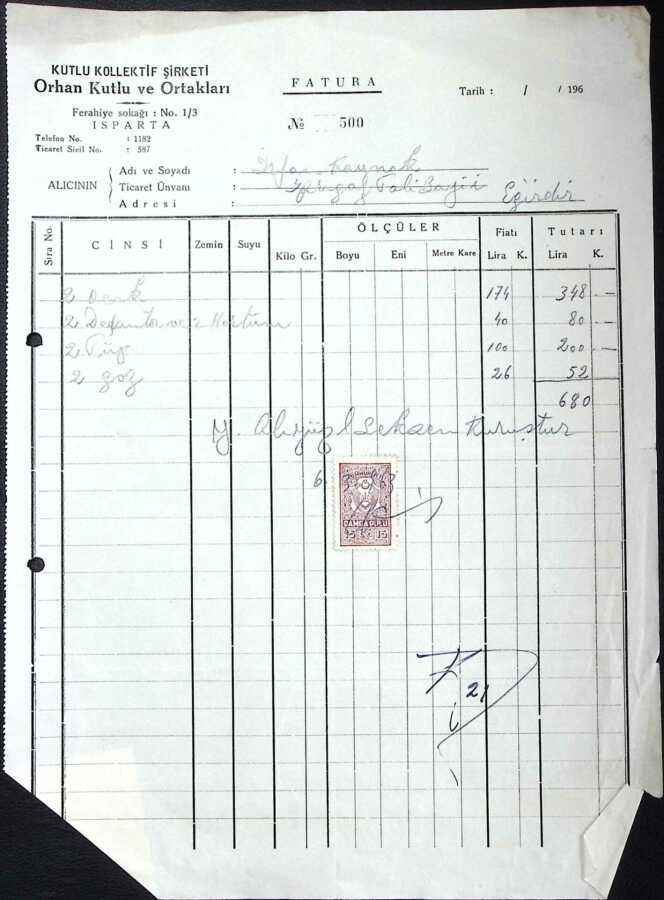 KUTLU KOLLEKTİF ŞİRKETİ
Orhan Kutlu ve Ortakları
Ferahiye sokağı : No. 1/3
ISPARTA
Telefon No. : 1182
Ticaret Sicil No. : 587
FATURA
№ 500
Tarih : / / 196
ALICININ
Adı ve Soyadı : Kaynak
Ticaret Ünvanı : Tali Bayii
Adresi : Eğirdir
Sıra No. CİNSİ Zemin Suyu Kilo Gr. ÖLÇÜLER Boyu Eni Metre Kare Fiatı Lira K. Tutarı Lira K.
2 Ocak 174 348 -
2 ve 2 Hortum 40 80 -
2 Tüp 100 200 -
2 26 52
680
Y. Altıyüz Seksen Kuruştur
6
DAMGA PULU
15 15
21